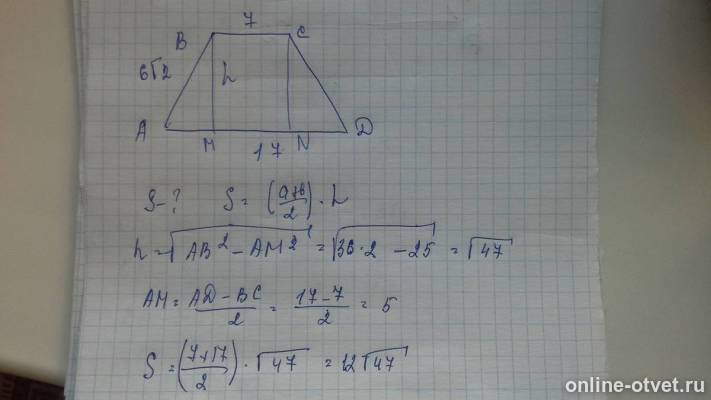 7
B C
6√2 h
A M N D
17
S-? S = (a+b/2) · h
h = √AB² - AM² = √36·2 - 25 = √47
AM = AD - BC/2 = 17-7/2 = 5
S = (7+17/2) · √47 = 12√47
online-otvet.ru